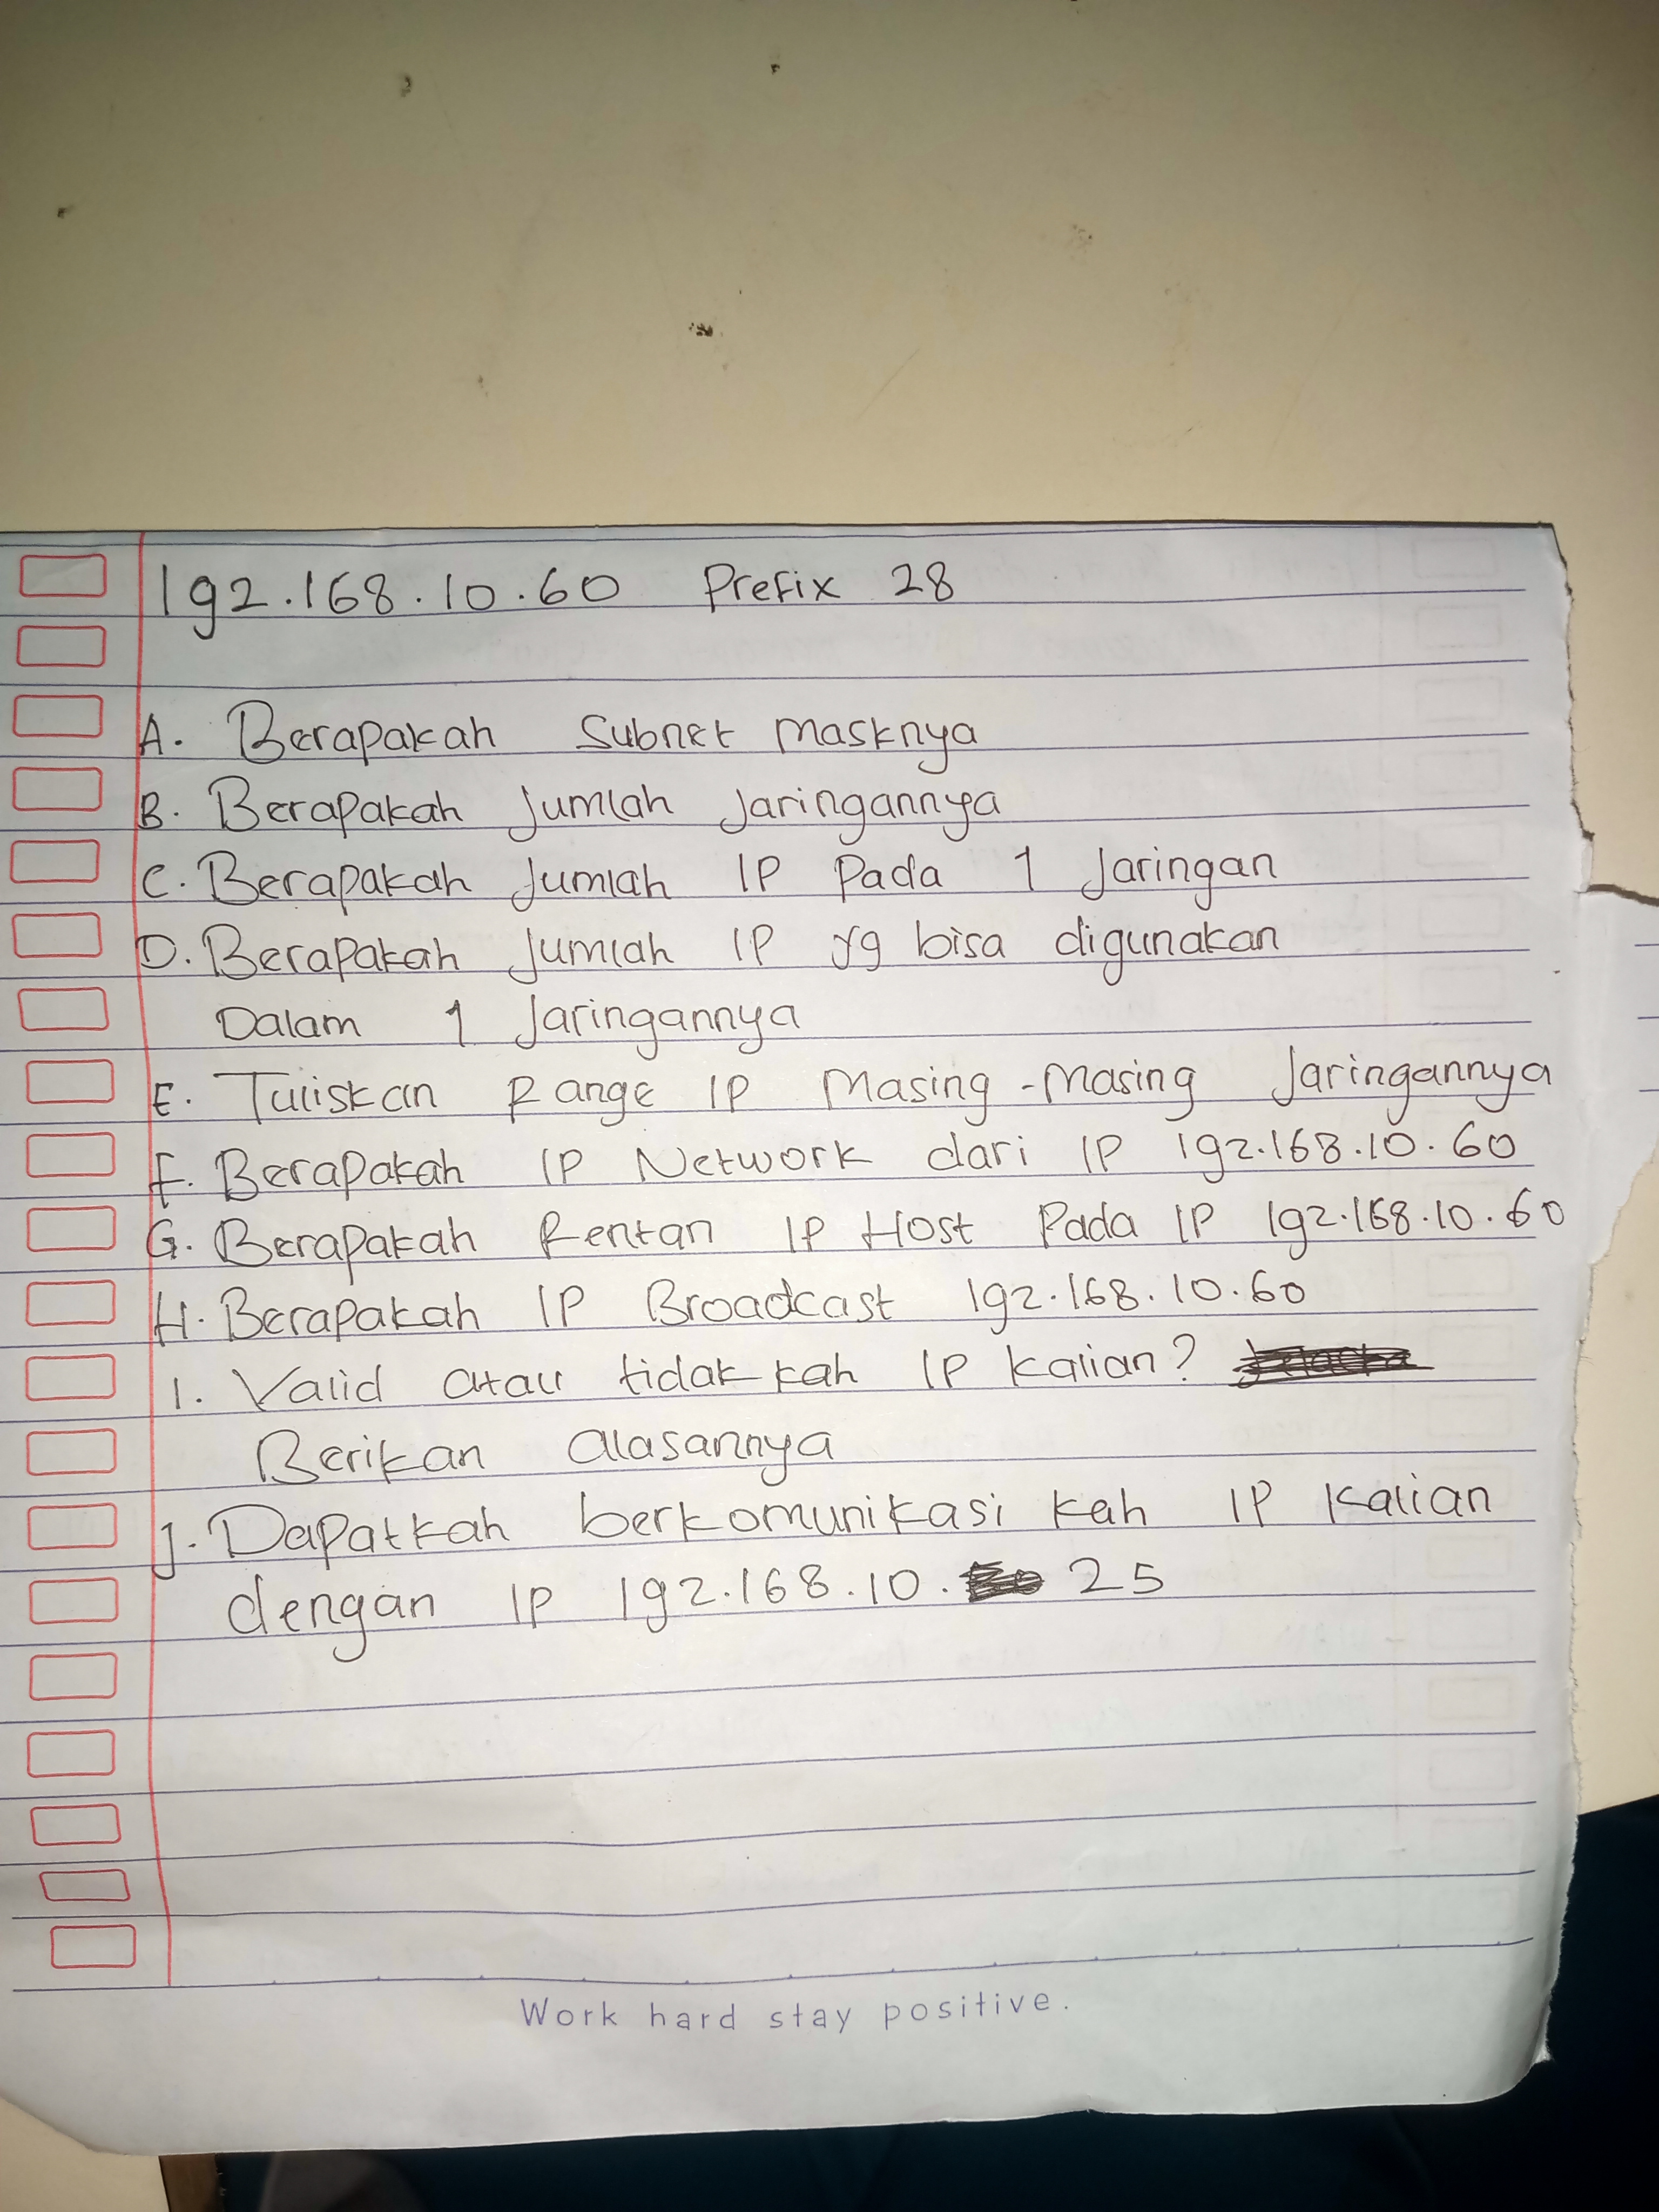 192.168.10.60 Prefix 28
A. Berapakah Subnet Masknya
B. Berapakah Jumlah Jaringannya
C. Berapakah Jumlah IP Pada 1 Jaringan
D. Berapakah Jumlah IP yg bisa digunakan
Dalam 1 Jaringannya
E. Tuliskan Range IP Masing-Masing Jaringannya
F. Berapakah IP Network dari IP 192.168.10.60
G. Berapakah Rentan IP Host Pada IP 192.168.10.60
H. Berapakah IP Broadcast 192.168.10.60
I. Valid atau tidak kah IP Kalian?
Berikan alasannya
J. Dapatkah berkomunikasi kah IP Kalian
dengan IP 192.168.10. 25
Work hard stay positive.